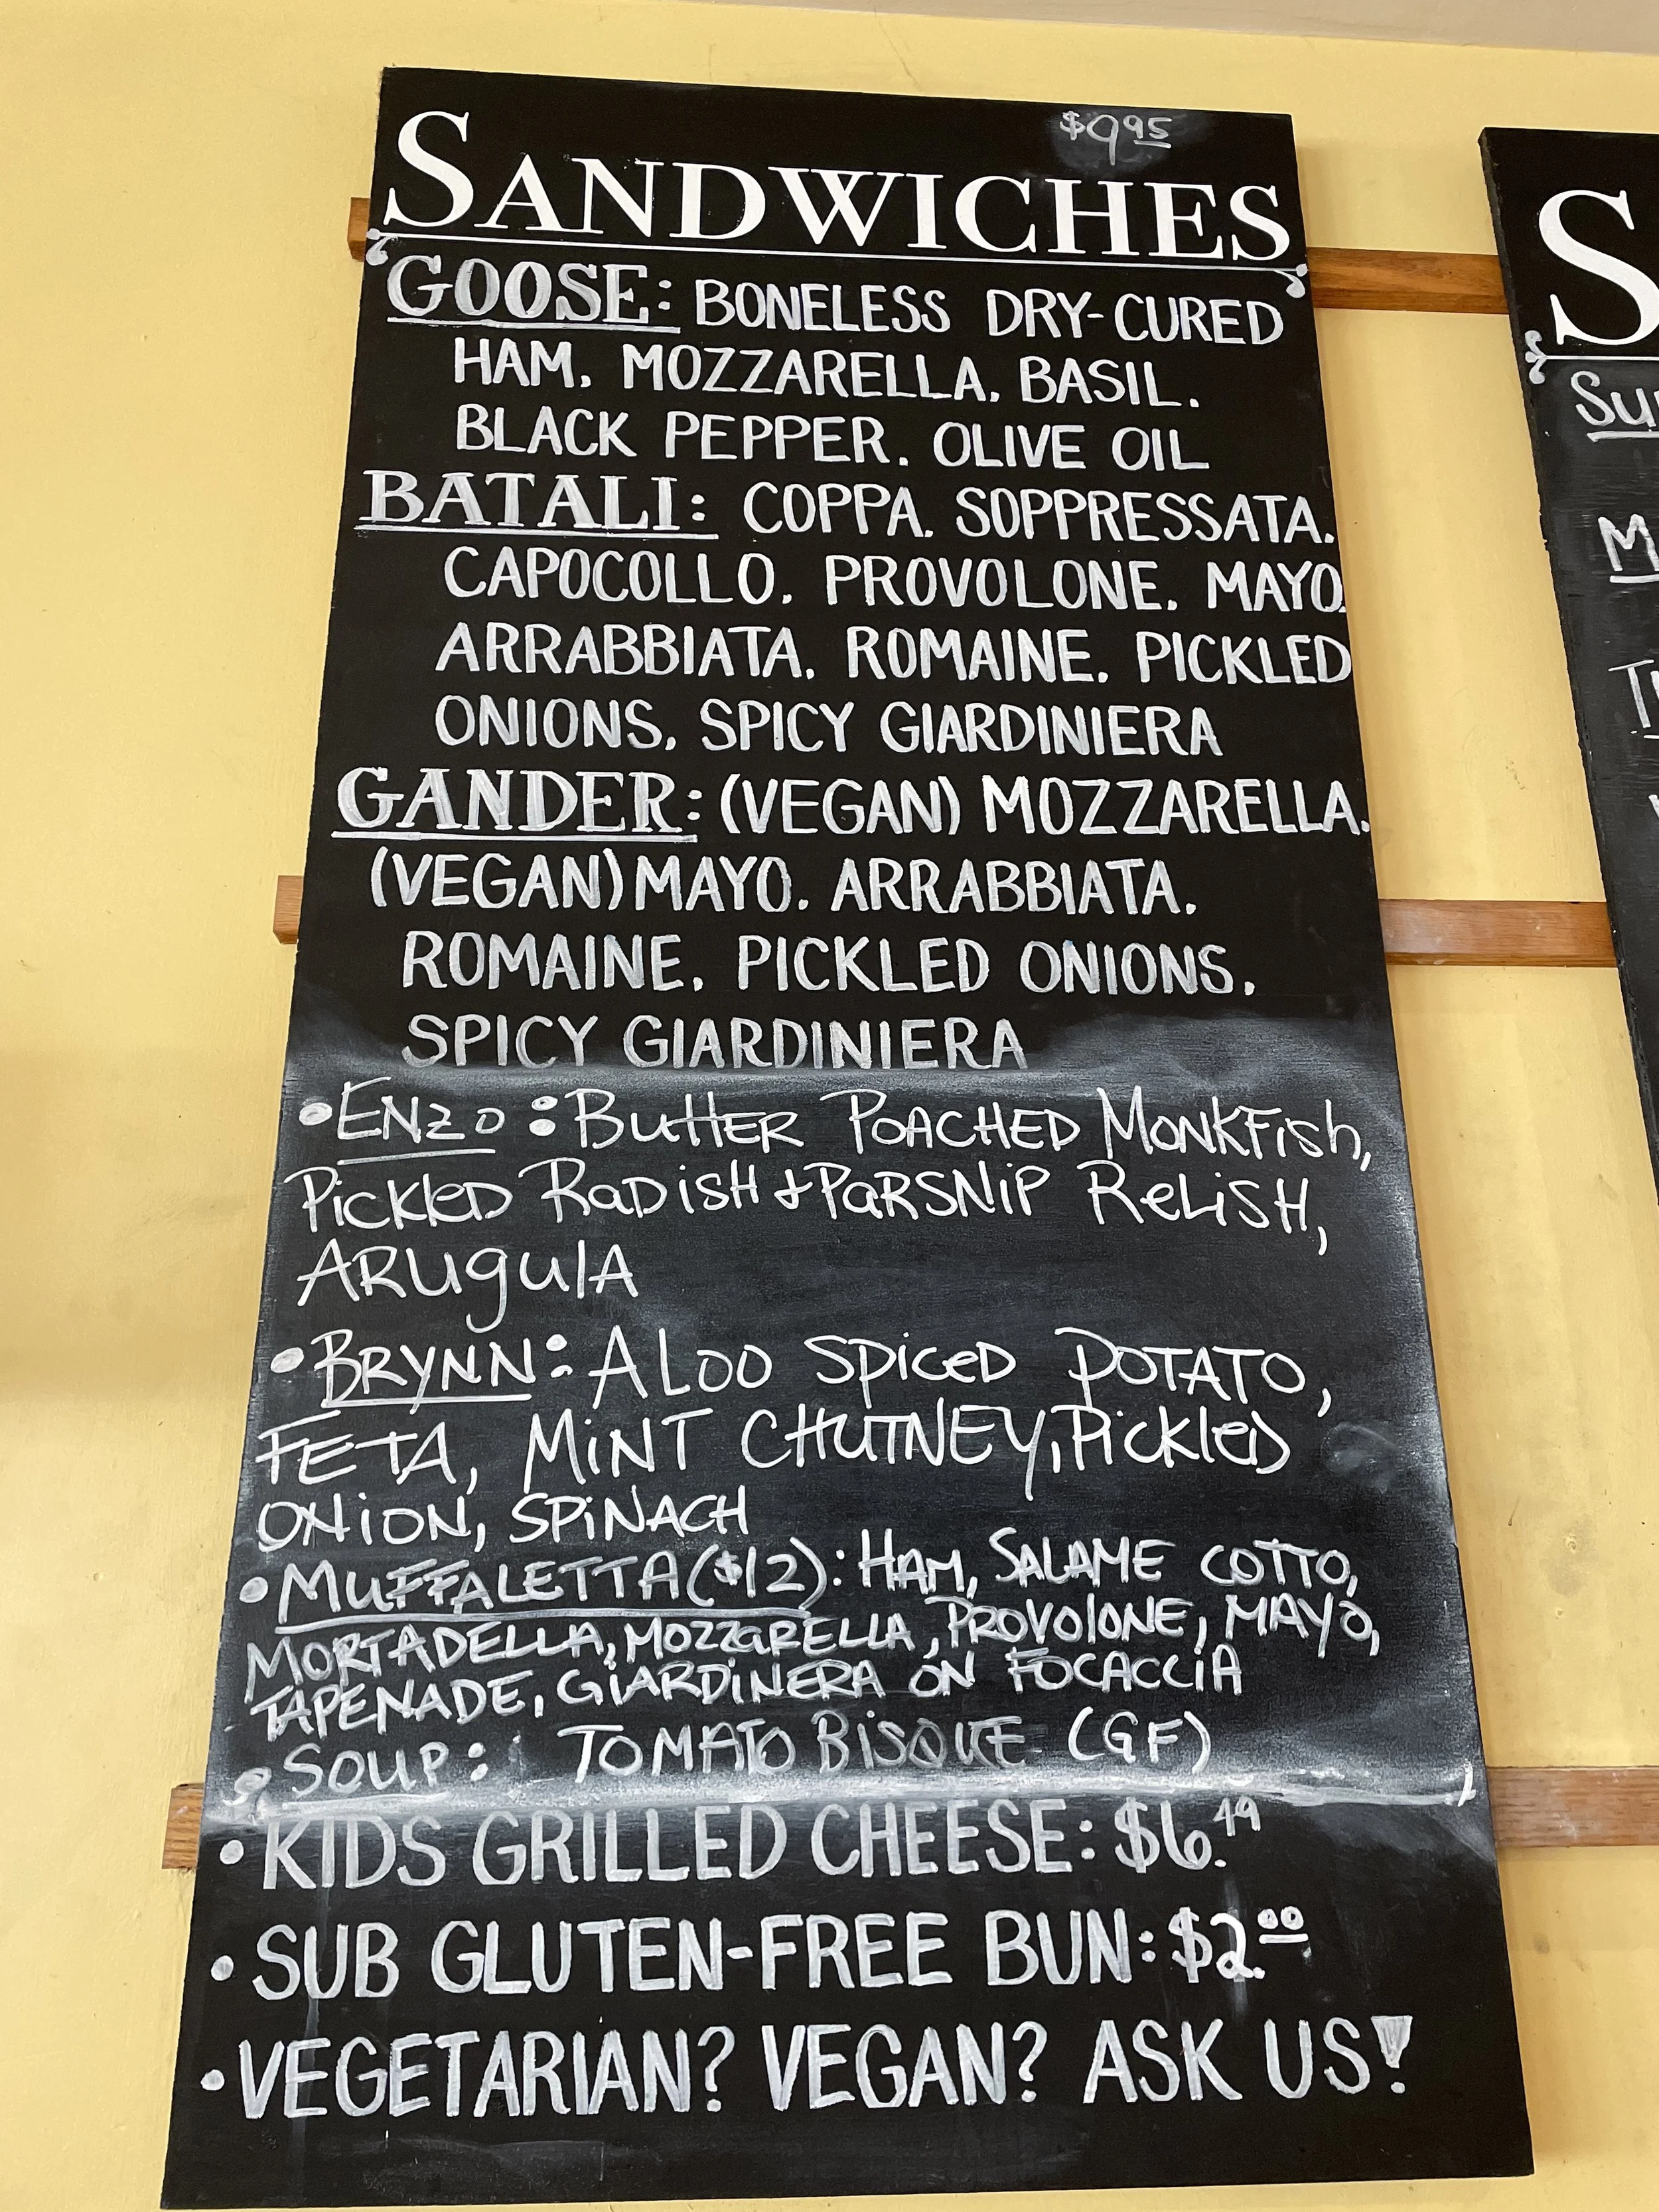 $9.95
SANDWICHES
GOOSE: BONELESS DRY-CURED
HAM. MOZZARELLA. BASIL.
BLACK PEPPER. OLIVE OIL
BATALI: COPPA. SOPPRESSATA.
CAPOCOLLO. PROVOLONE. MAYO.
ARRABBIATA. ROMAINE. PICKLED
ONIONS. SPICY GIARDINIERA
GANDER: (VEGAN) MOZZARELLA.
(VEGAN) MAYO. ARRABBIATA.
ROMAINE. PICKLED ONIONS.
SPICY GIARDINIERA
• ENZO: BUTTER POACHED MONKFISH,
PICKLED RADISH + PARSNIP RELISH,
ARUGULA
• BRYNN: ALOO SPICED POTATO,
FETA, MINT CHUTNEY, PICKLED
ONION, SPINACH
• MUFFALETTA ($12): HAM, SALAME COTTO,
MORTADELLA, MOZZARELLA, PROVOLONE, MAYO,
TAPENADE, GIARDINERA ON FOCACCIA
• SOUP: TOMATO BISQUE (GF)
• KIDS GRILLED CHEESE: $6.49
• SUB GLUTEN-FREE BUN: $2.00
• VEGETARIAN? VEGAN? ASK US!
S
Su
M